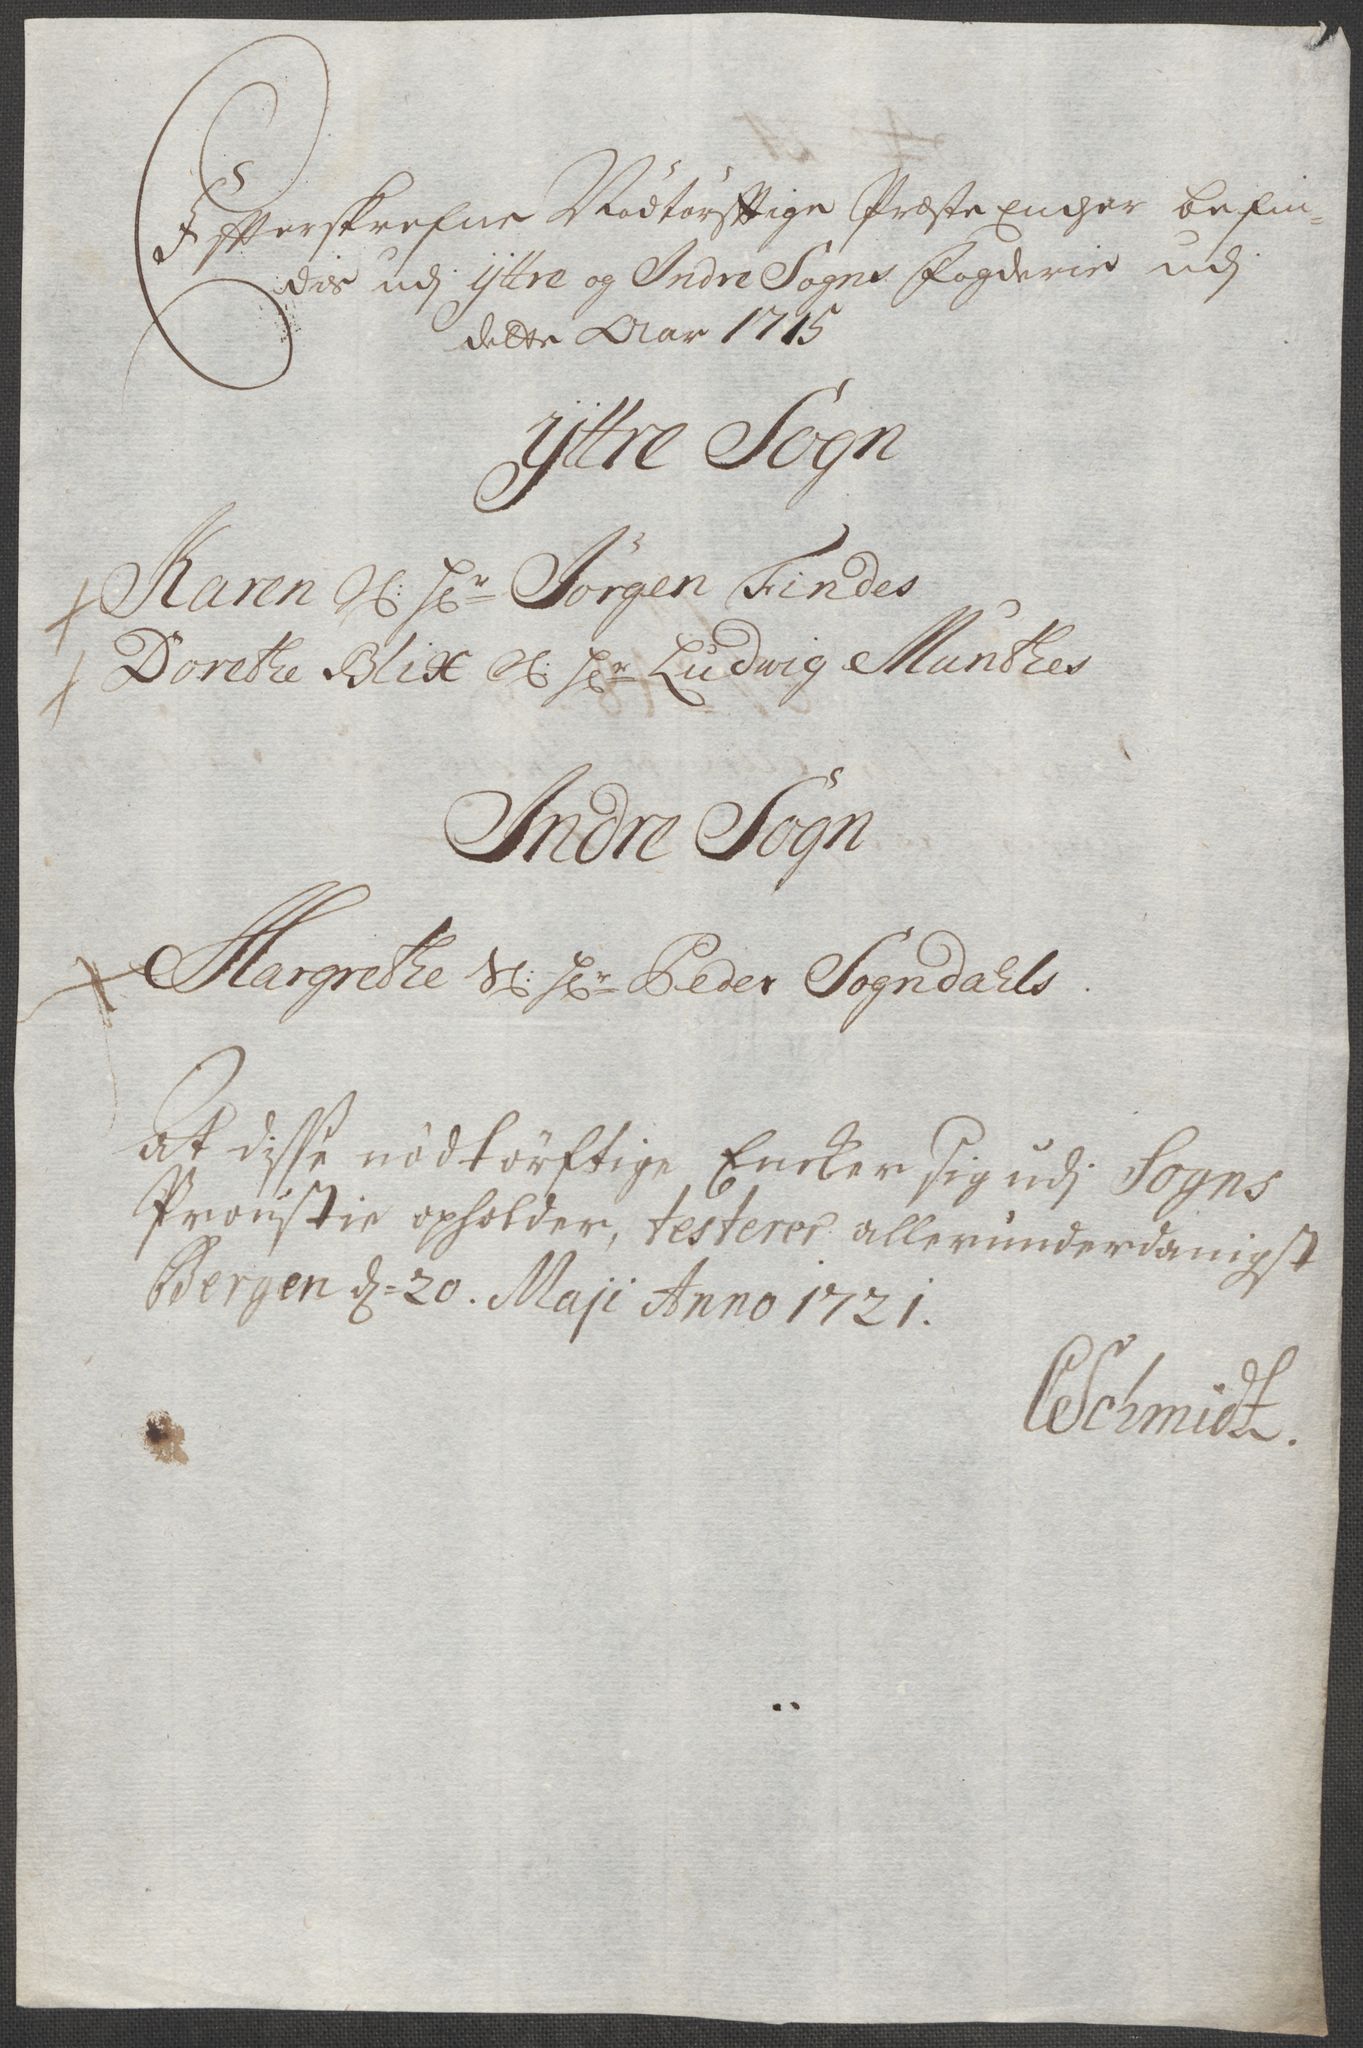 Effterskrefne Nödtörfftige Præste Encher befin-
des udj ÿttre og Indre Sogns Fogderie udj
dette Aar 1715
ÿttre Sogn
Karen Sl: Hr Jörgen Findes
Dorethe Blix Sl: Hr Ludwig Munthes
Indre Sogn
Margrethe Sl: Hr Peder Sogndahls.
At disse nödtörftige Encker sig udj Sogns
Proustie opholder, testerer allerunderdanigst
Bergen d= 20. Maji Anno 1721.
CSchmidt.